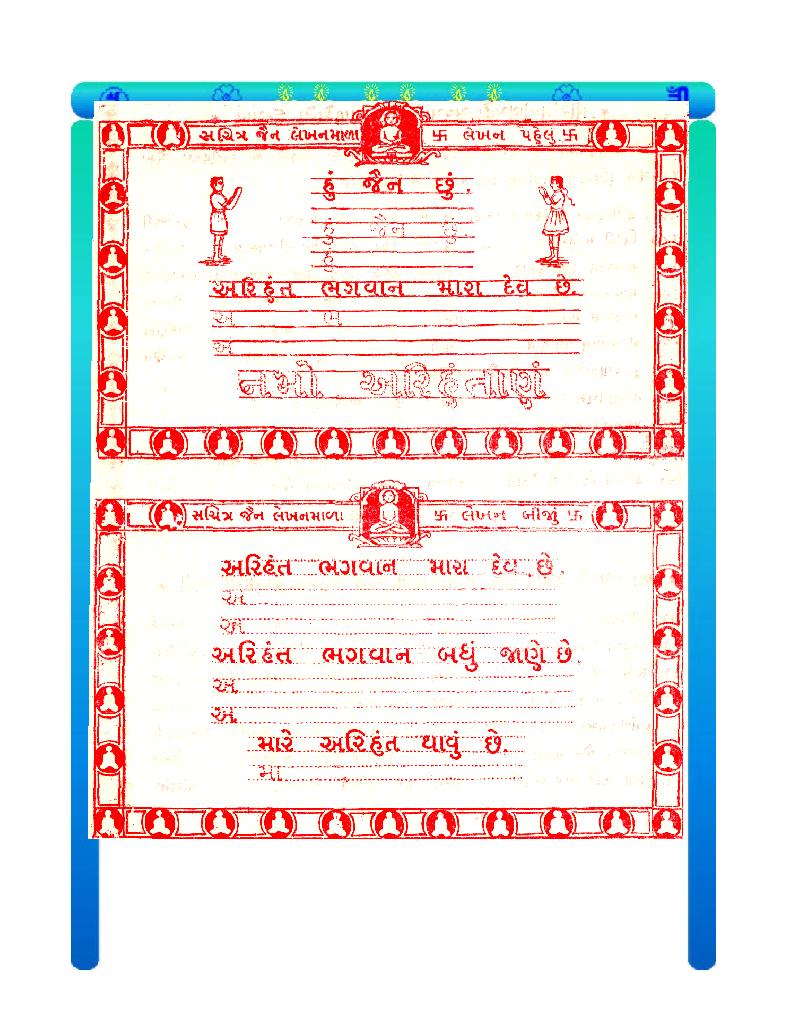 સચિત્ર જૈન લેખનમાળા 卐 લેખન પહેલું 卐
હું જૈન છું.
હું જૈન છું.
હું
અરિહંત ભગવાન મારા દેવ છે.
અ ભ
અ
નમો અરિહંતાણં
સચિત્ર જૈન લેખનમાળા 卐 લેખન બીજું 卐
અરિહંત ભગવાન મારા દેવ છે.
અ
અ
અરિહંત ભગવાન બધું જાણે છે.
અ
અ
મારે અરિહંત થાવું છે.
મા